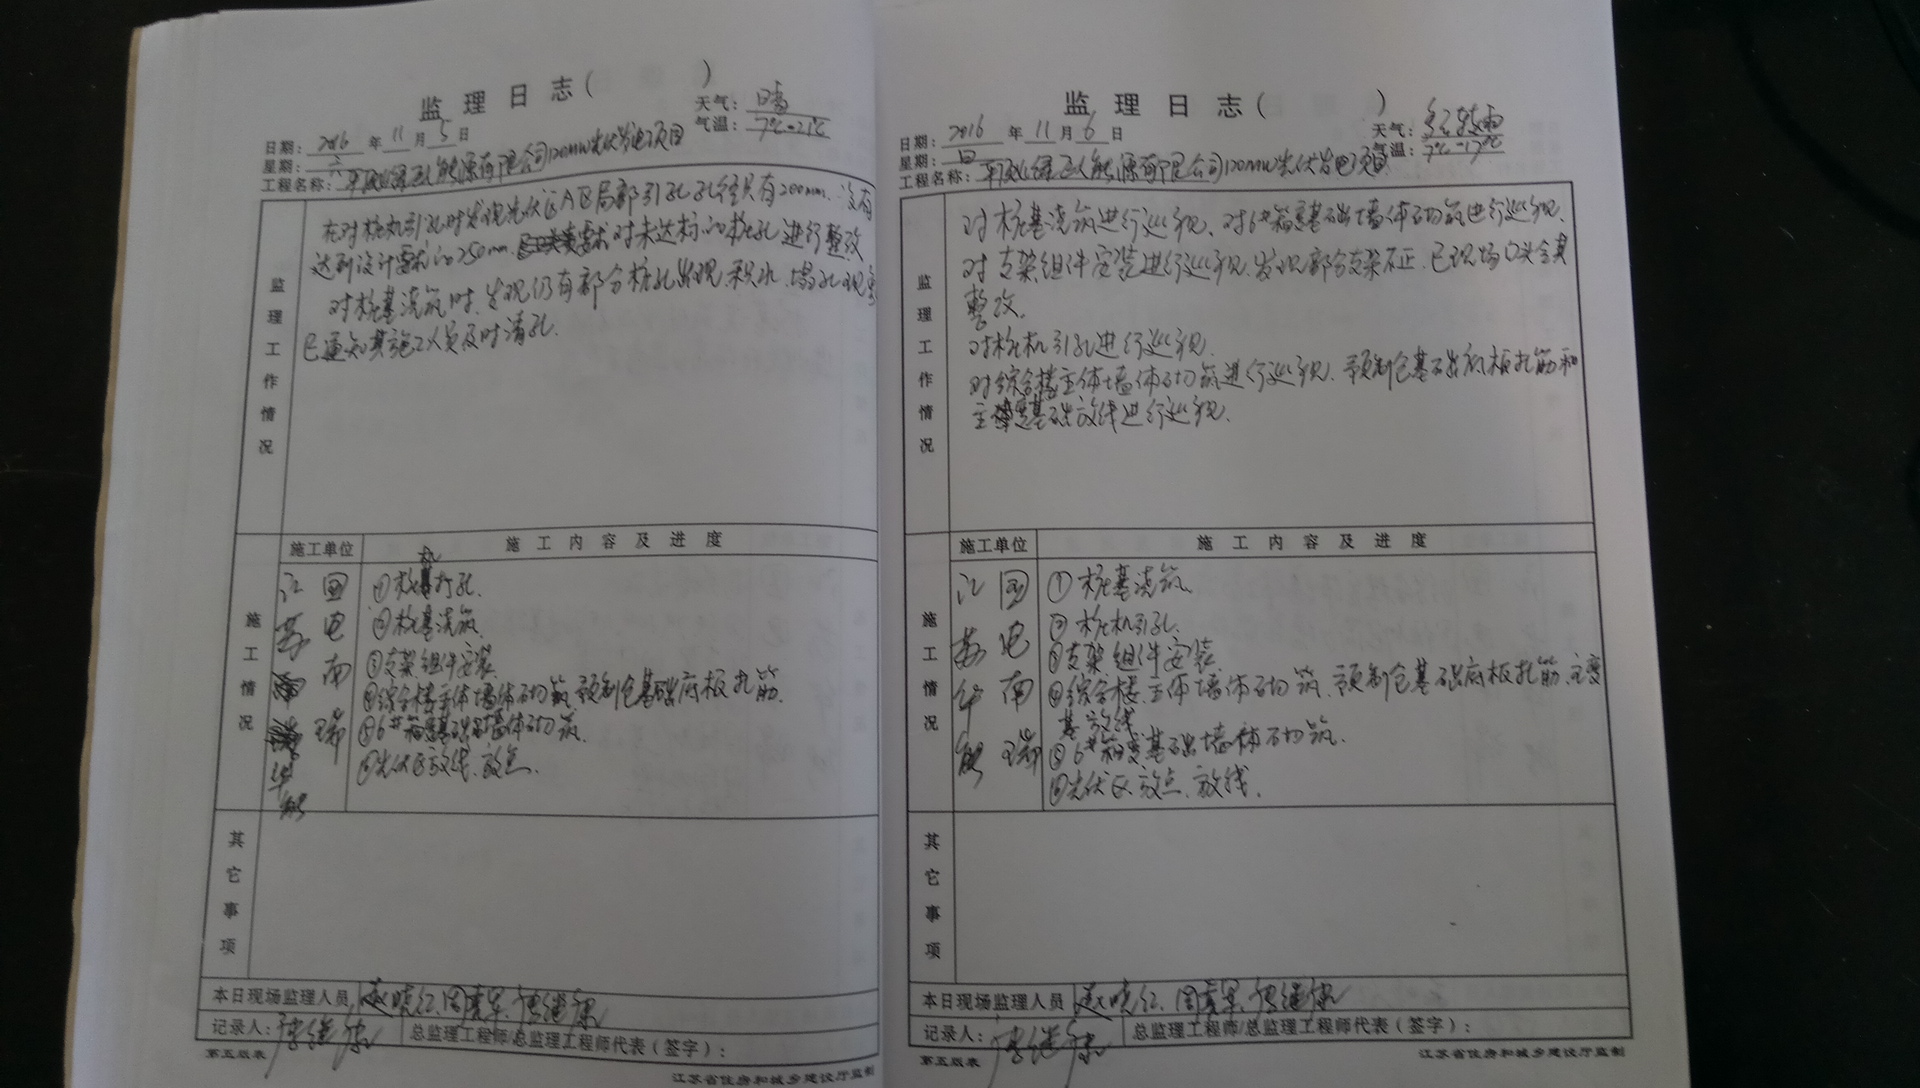 监理日志(        )
天气: 晴
气温: 7℃-21℃
日期: 2016 年 11 月 5 日
星期: 六
工程名称: 能源有限公司120MW光伏发电项目
监理工作情况
在对桩机引孔时发现光伏区A区局部引孔孔径只有200mm, 没有
达到设计要求的250mm, 对未达标的桩孔进行整改
对桩基浇筑时, 发现仍有部分桩孔出现积水、塌孔现象
已通知其施工人员及时清孔.
施工情况
施工单位
施工内容及进度
江苏华能
国电南瑞
①桩机打孔.
②桩基浇筑.
③支架组件安装.
④综合楼主体墙体砌筑, 预制仓基础底板扎筋.
⑤6#箱变基础墙体砌筑.
⑥光伏区放线、放点.
其它事项
本日现场监理人员
记录人:
总监理工程师/总监理工程师代表(签字):
第五版表
江苏省住房和城乡建设厅监制
监理日志(        )
天气:
气温: 7℃-17℃
日期: 2016 年 11 月 6 日
星期: 日
工程名称: 能源有限公司120MW光伏发电项目
监理工作情况
对桩基浇筑进行巡视、对6#箱变基础墙体砌筑进行巡视.
对支架组件安装进行巡视, 发现部分支架不正, 已现场口头令其
整改.
对桩机引孔进行巡视.
对综合楼主体墙体砌筑进行巡视, 预制仓基础底板扎筋和
主变基础放线进行巡视.
施工情况
施工单位
施工内容及进度
江苏华能
国电南瑞
①桩基浇筑.
②桩机引孔.
③支架组件安装.
④综合楼主体墙体砌筑, 预制仓基础底板扎筋, 主变
基放线
⑤6#箱变基础墙体砌筑.
⑥光伏区放点、放线.
其它事项
本日现场监理人员
记录人:
总监理工程师/总监理工程师代表(签字):
第五版表
江苏省住房和城乡建设厅监制